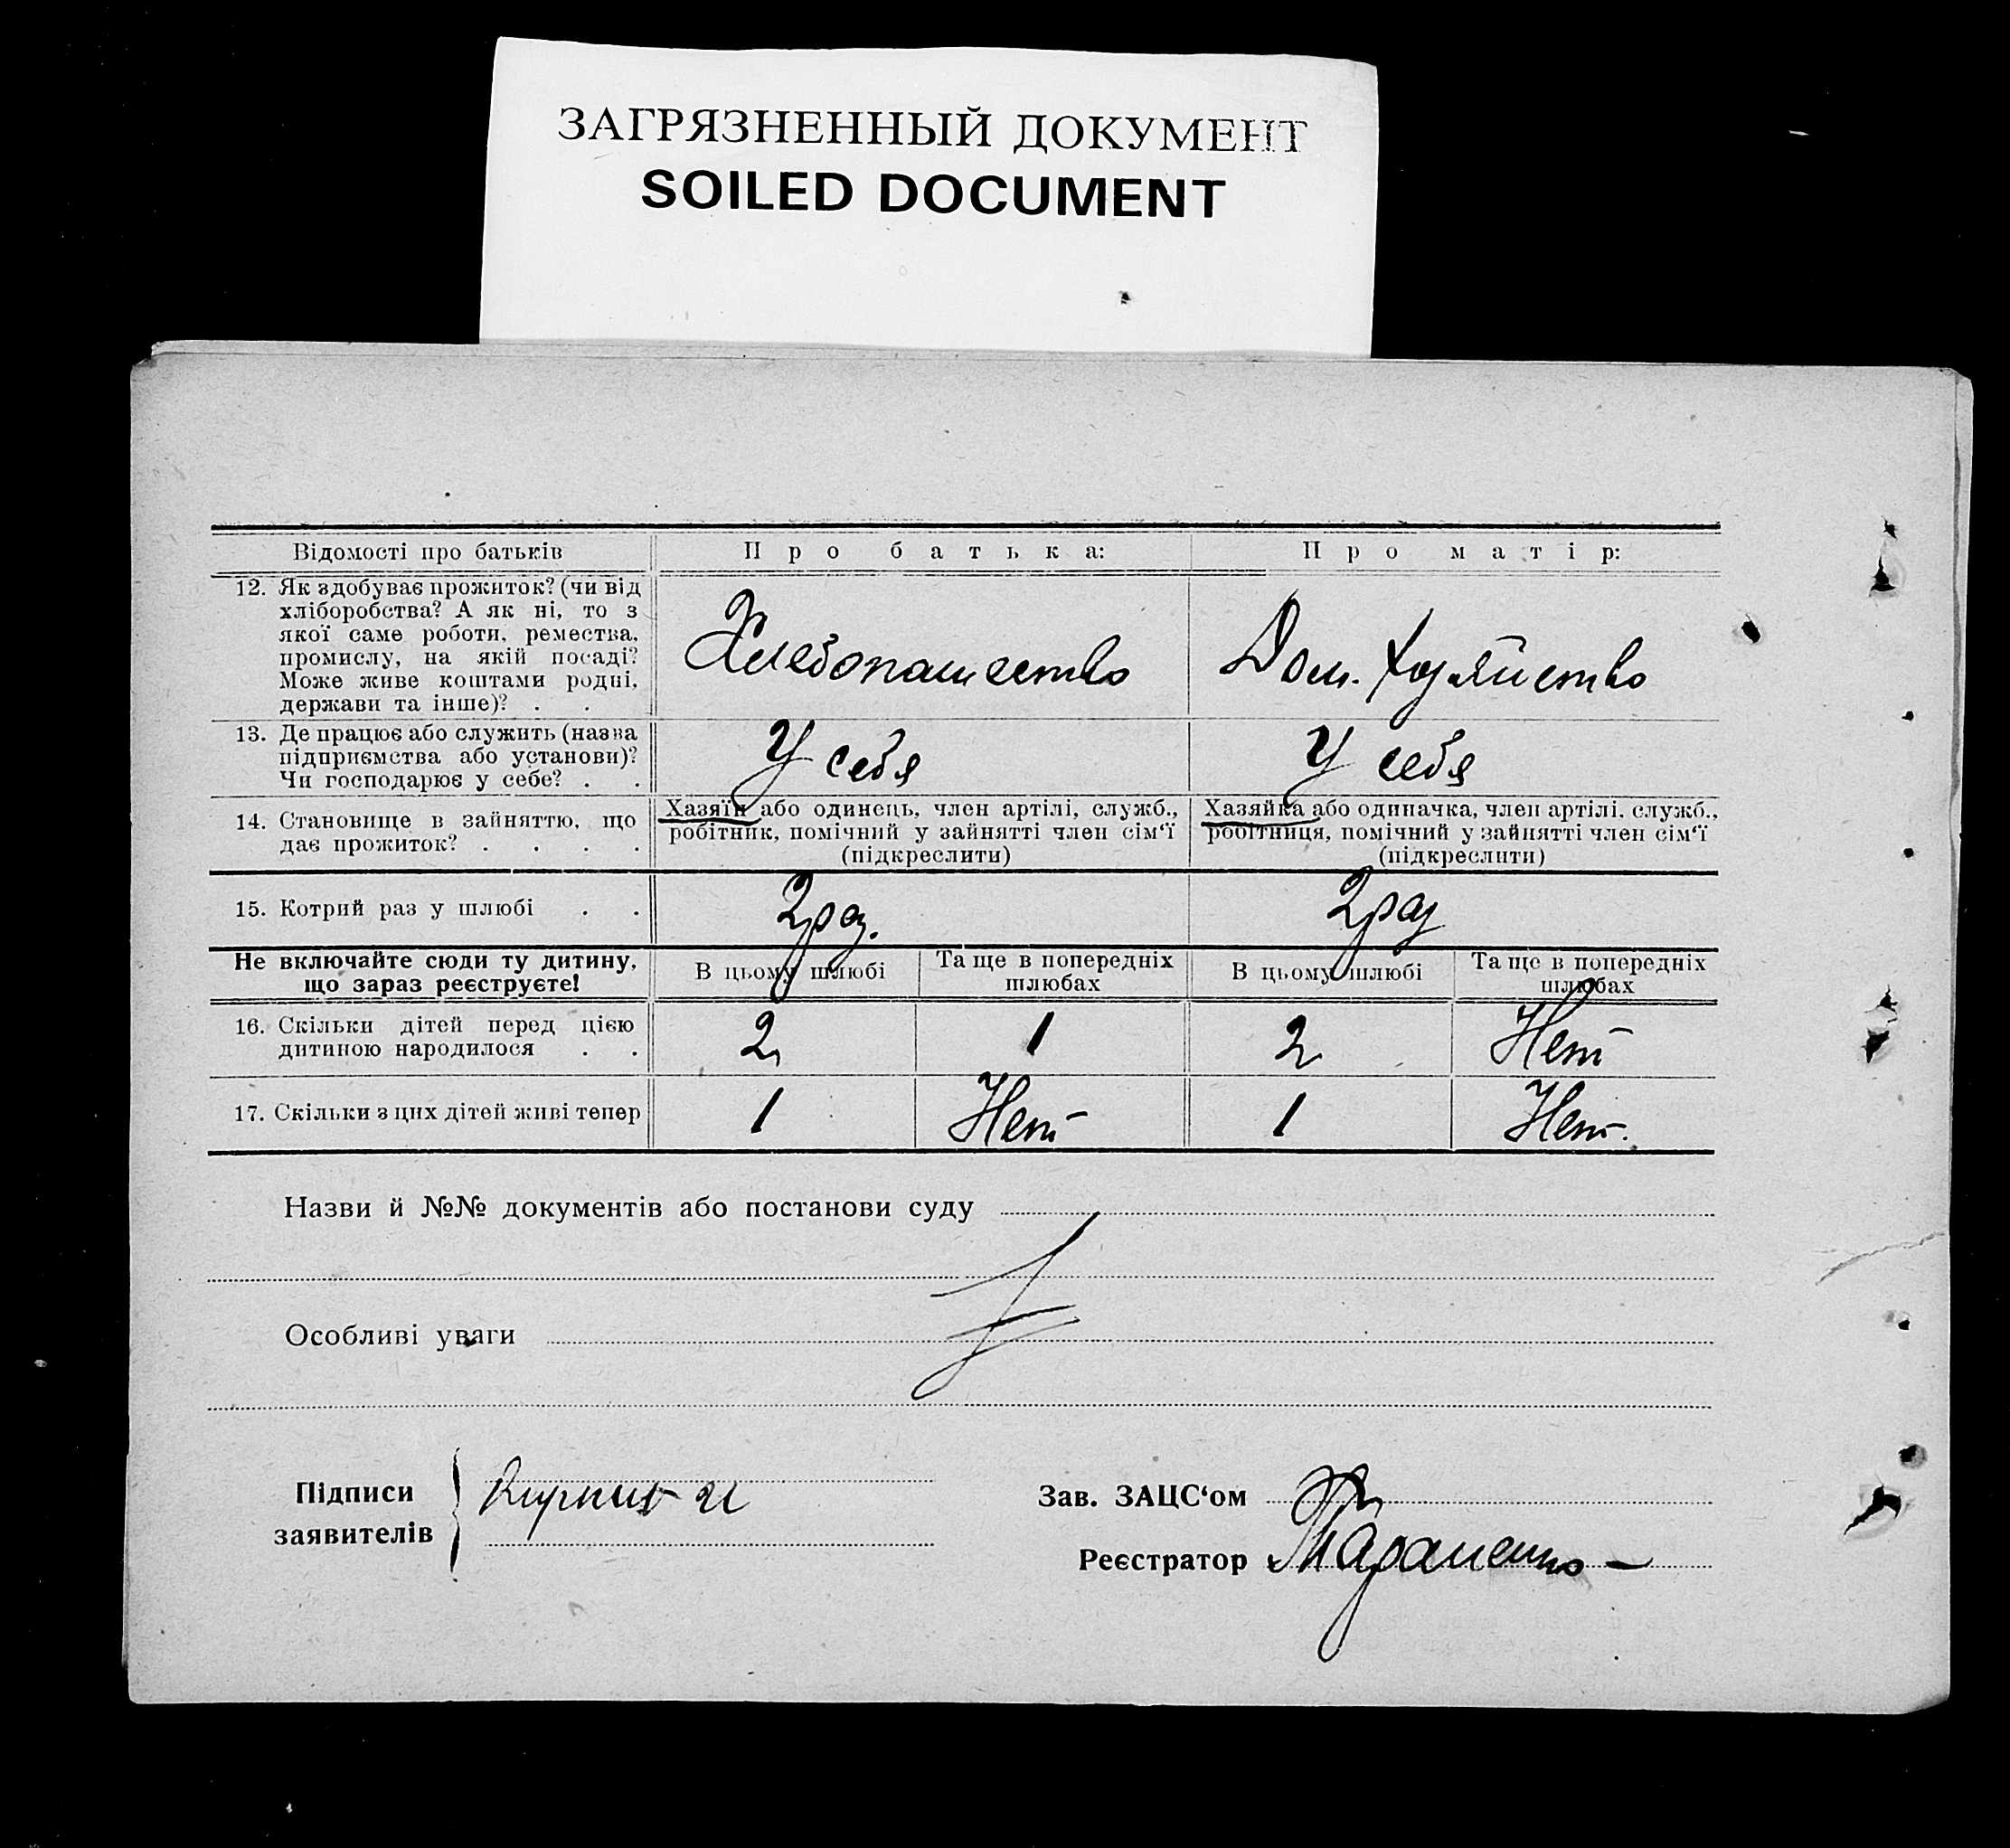 ЗАГРЯЗНЕННЫЙ ДОКУМЕНТ
SOILED DOCUMENT
Відомості про батьків
Про батька:
Про матір:
12. Як здобуває прожиток? (чи від
хліборобства? А як ні, то з
якої саме роботи, ремества,
промислу, на якій посаді?
Може живе коштами родні,
держави та інше)? . .
Хлебопашество
Дом. хозяйство
13. Де працює або служить (назва
підприємства або установи)?
Чи господарює у себе? . .
У себя
У себя
14. Становище в зайняттю, що
дає прожиток? . . . .
Хазяїн або одинець, член артілі, служб.,
робітник, помічний у зайнятті член сім'ї
(підкреслити)
Хазяйка або одиначка, член артілі, служб.,
робітниця, помічний у зайнятті член сім'ї
(підкреслити)
15. Котрий раз у шлюбі . .
2 раз.
2 раз
Не включайте сюди ту дитину,
що зараз реєструєте!
В цьому шлюбі
Та ще в попередніх
шлюбах
В цьому шлюбі
Та ще в попередніх
шлюбах
16. Скільки дітей перед цією
дитиною народилося . .
2
1
2
Нет
17. Скільки з цих дітей живі тепер
1
Нет
1
Нет.
Назви й №№ документів або постанови суду
Особливі уваги
Підписи
заявителів
Зав. ЗАЦС'ом
Реєстратор